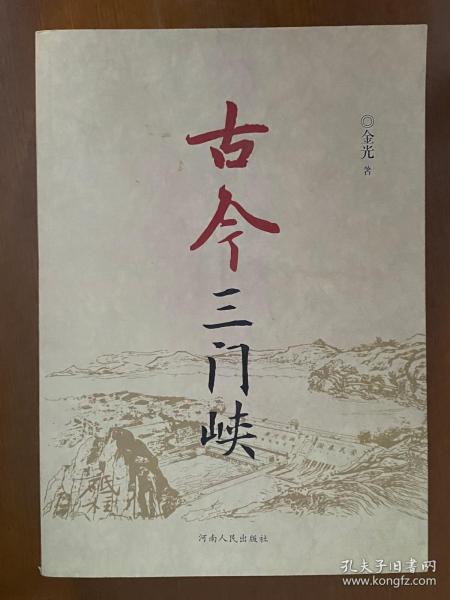 古今三门峡
◎金光 著
河南人民出版社
孔夫子旧书网
www.kongfz.com